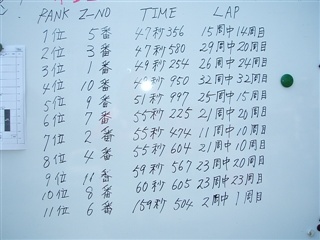 RANK Z-NO TIME LAP
1位 5番 47秒356 15周中14周目
2位 3番 47秒580 29周中20周目
3位 1番 49秒254 26周中24周目
4位 10番 49秒950 32周中32周目
5位 9番 51秒997 25周中15周目
6位 7番 55秒225 21周中20周目
7位 2番 55秒474 11周中10周目
8位 4番 55秒604 21周中10周目
9位 11番 59秒567 23周中20周目
10位 8番 60秒605 23周中23周目
11位 6番 159秒504 2周中1周目